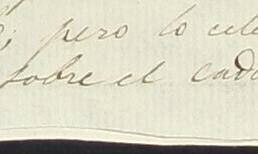 ; pero lo cele
sobre el cada